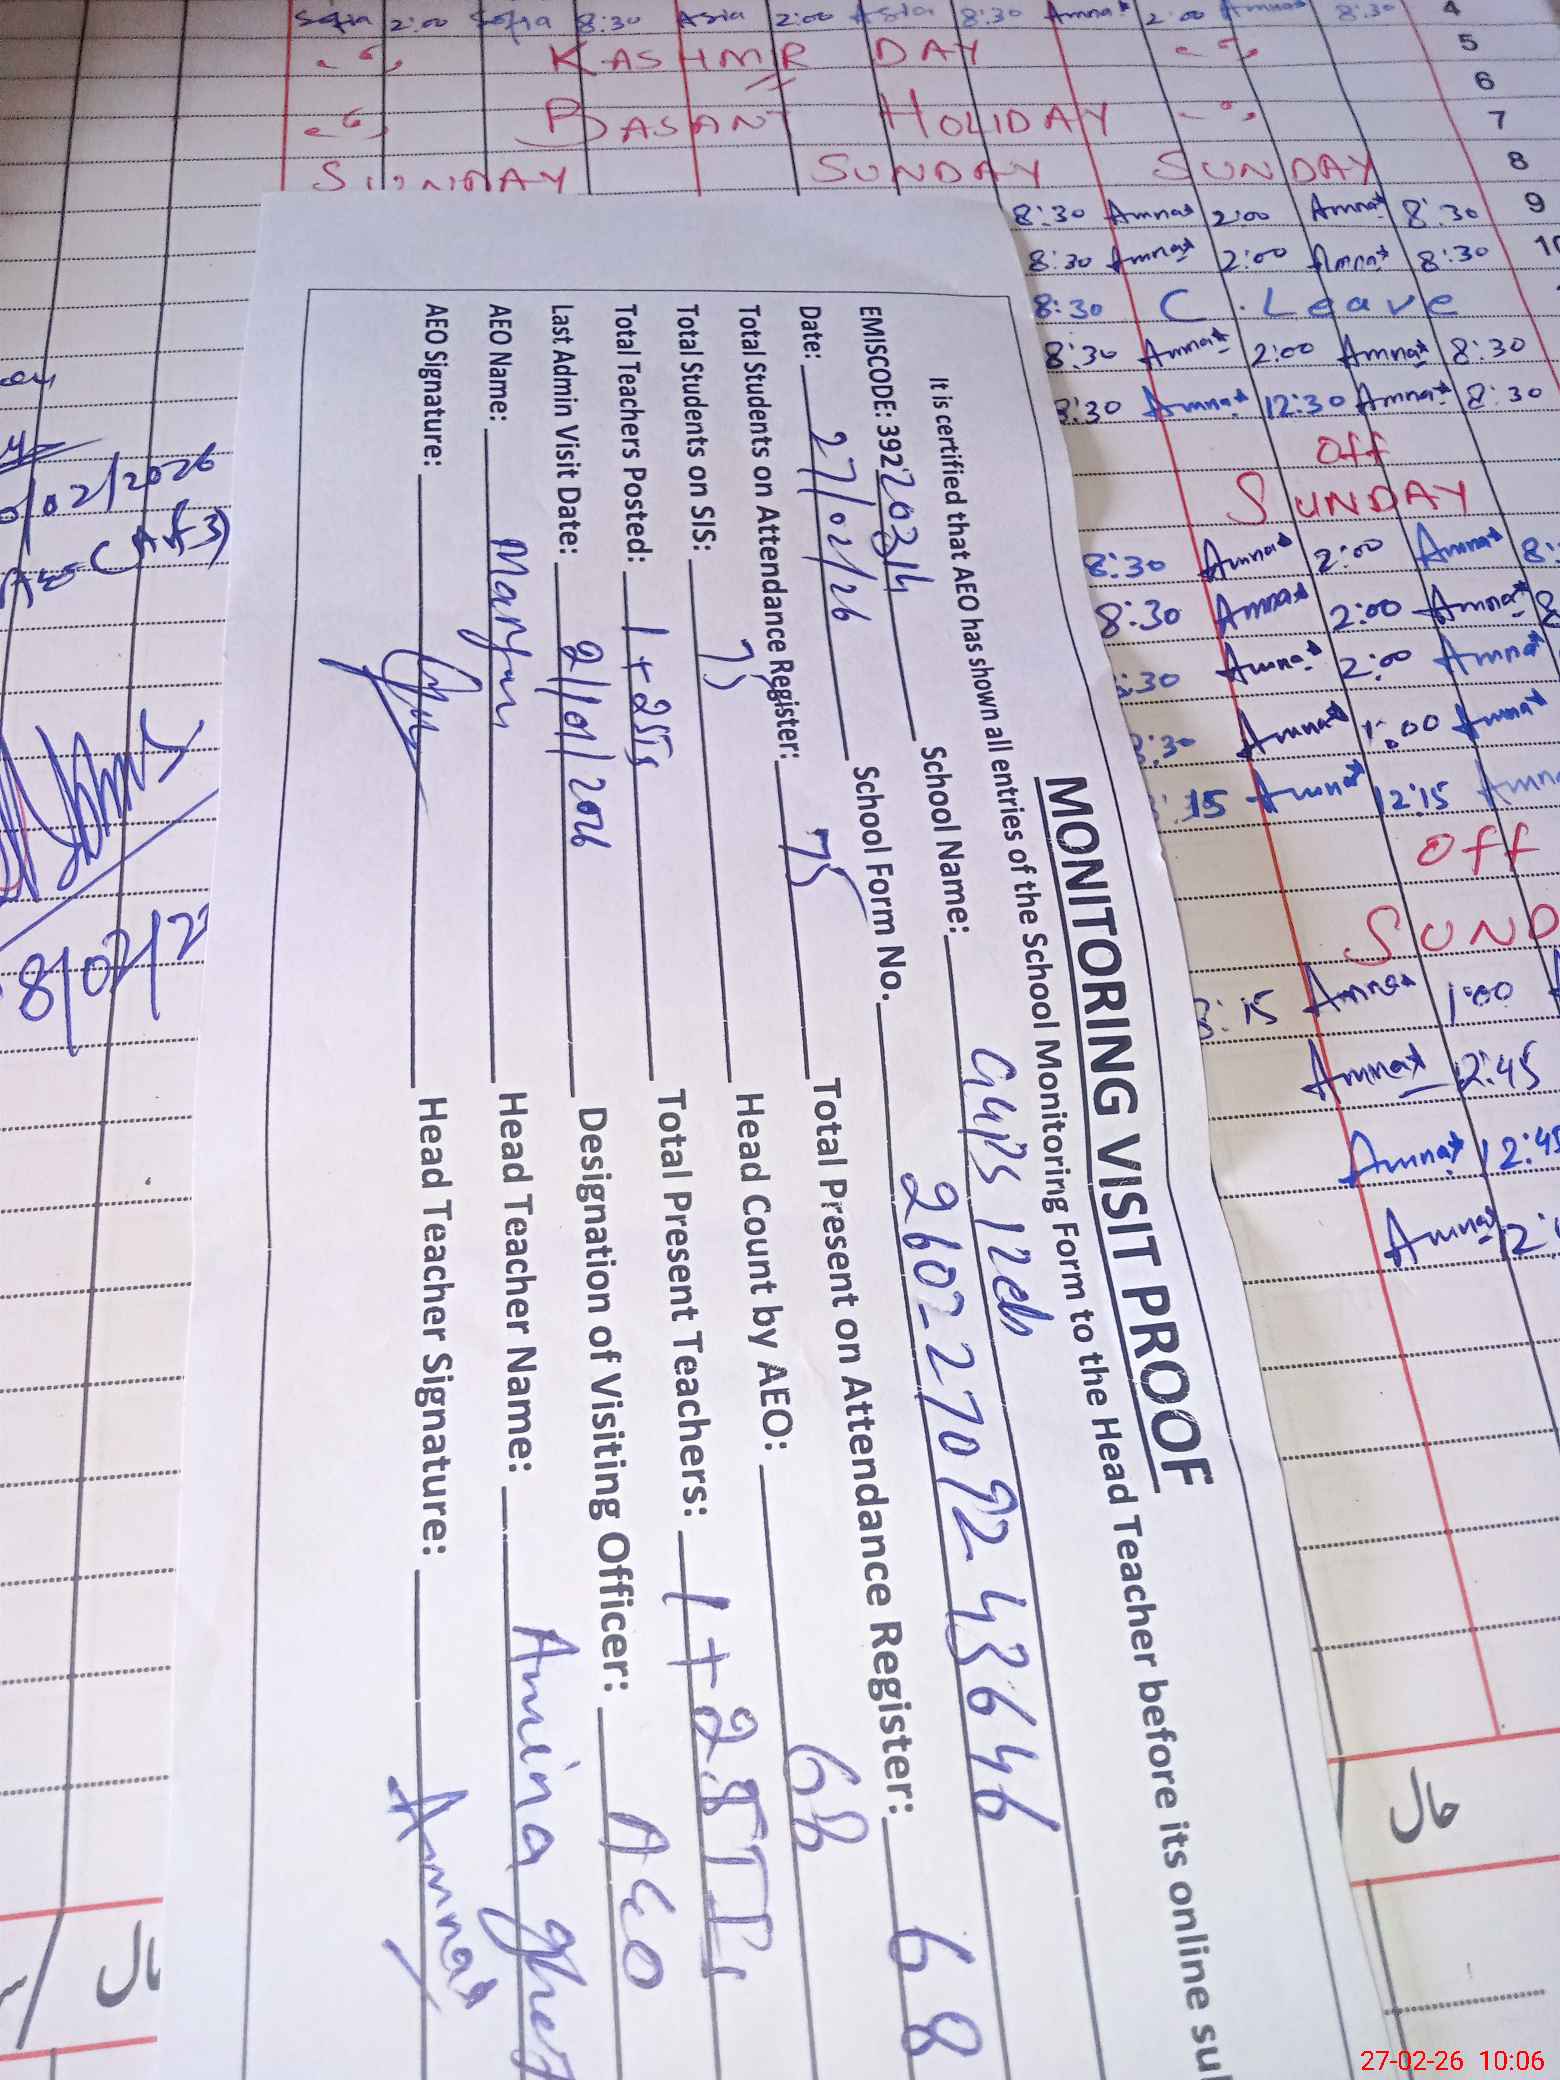 Sofia 2:00 Sofia 8:30 Asia 2:00 Asia 8:30 Amna 2:00 Amna 8:30 4
KASHMIR DAY 5
6
BASANT HOLIDAY 7
SUNDAY SUNDAY SUNDAY 8
8:30 Amna 2:00 Amna 8:30 9
8:30 Amna 2:00 Amna 8:30 10
8:30 C. Leave
8:30 Amna 2:00 Amna 8:30
8:30 Amna 12:30 Amna 8:30
Off
SUNDAY
8:30 Amna 2:00 Amna
8:30 Amna 2:00 Amna
:30 Amna 2:00 Amna
:30 Amna 1:00 Amna
15 Amna 12:15 Amna
Off
SUND
8:15 Amna 1:00
Amna 12:45
Amna 12:45
Amna
MONITORING VISIT PROOF
It is certified that AEO has shown all entries of the School Monitoring Form to the Head Teacher before its online su
EMISCODE: 39220314 School Name: GGPS 12
Date: 27/02/26 School Form No. 2602270924 3646
Total Students on Attendance Register: 75 Total Present on Attendance Register: 68
Total Students on SIS: 75 Head Count by AEO: 68
Total Teachers Posted: 1+2STIs Total Present Teachers: 1+2STIs
Last Admin Visit Date: 2/01/2026 Designation of Visiting Officer: AEO
AEO Name: Maryam Head Teacher Name: Amina
AEO Signature: Head Teacher Signature: Amna
/02/2026
حال
حال
27-02-26 10:06